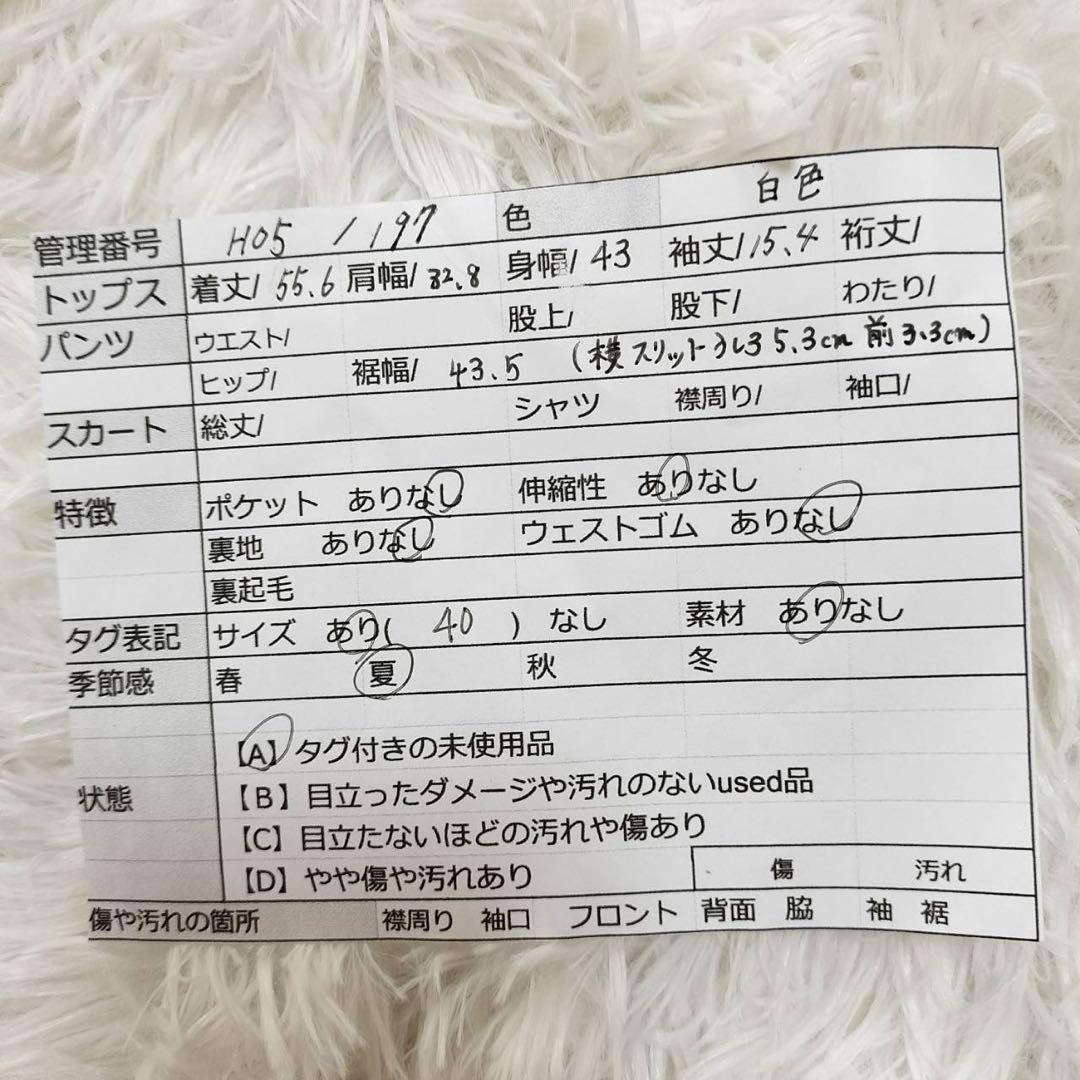 管理番号 H05 / 197 色 白色
トップス 着丈/ 55.6 肩幅/ 32.8 身幅/ 43 袖丈/ 15.4 裄丈/
パンツ ウエスト/ 股上/ 股下/ わたり/
ヒップ/ 裾幅/ 43.5 (横スリットうしろ5.3cm 前3.3cm)
スカート 総丈/ シャツ 襟周り/ 袖口/
特徴 ポケット ありなし 伸縮性 ありなし
裏地 ありなし ウェストゴム ありなし
裏起毛
タグ表記 サイズ あり( 40 ) なし 素材 ありなし
季節感 春 夏 秋 冬
状態
【A】タグ付きの未使用品
【B】目立ったダメージや汚れのないused品
【C】目立たないほどの汚れや傷あり
【D】やや傷や汚れあり 傷 汚れ
傷や汚れの箇所 襟周り 袖口 フロント 背面 脇 袖 裾